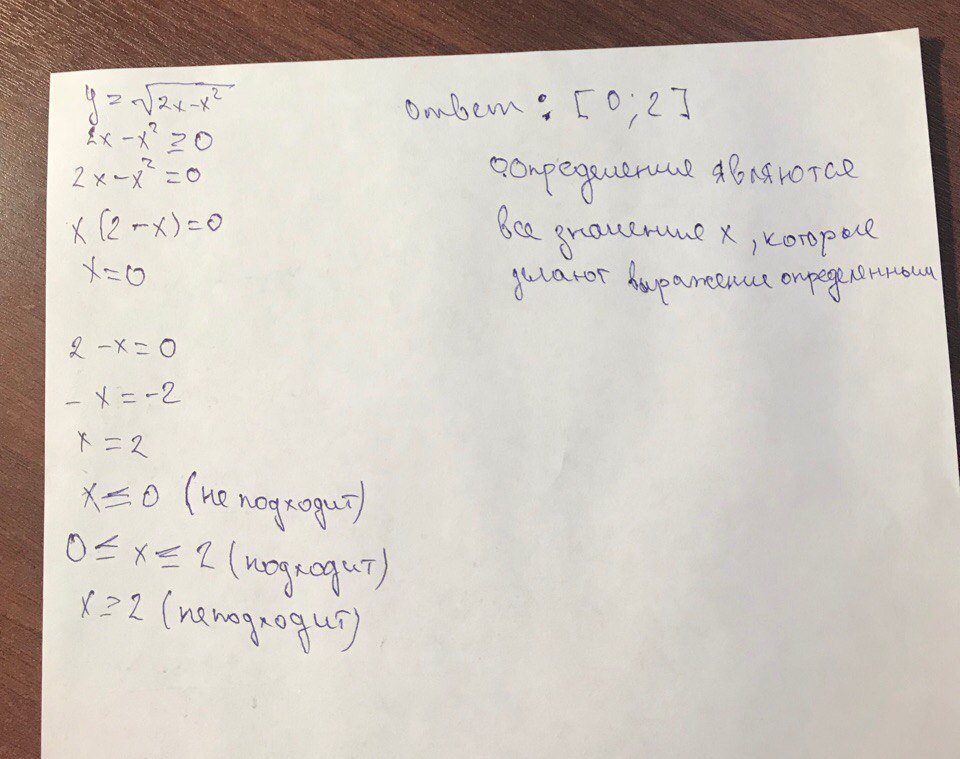 y = √2x-x²
2x - x² ≥ 0
2x - x² = 0
x (2 - x) = 0
x = 0
2 - x = 0
- x = -2
x = 2
x ≤ 0 (не подходит)
0 ≤ x ≤ 2 (подходит)
x ≥ 2 (не подходит)
ответ : [0; 2]
Определение являются
все значение x, которые
делают выражение определенным